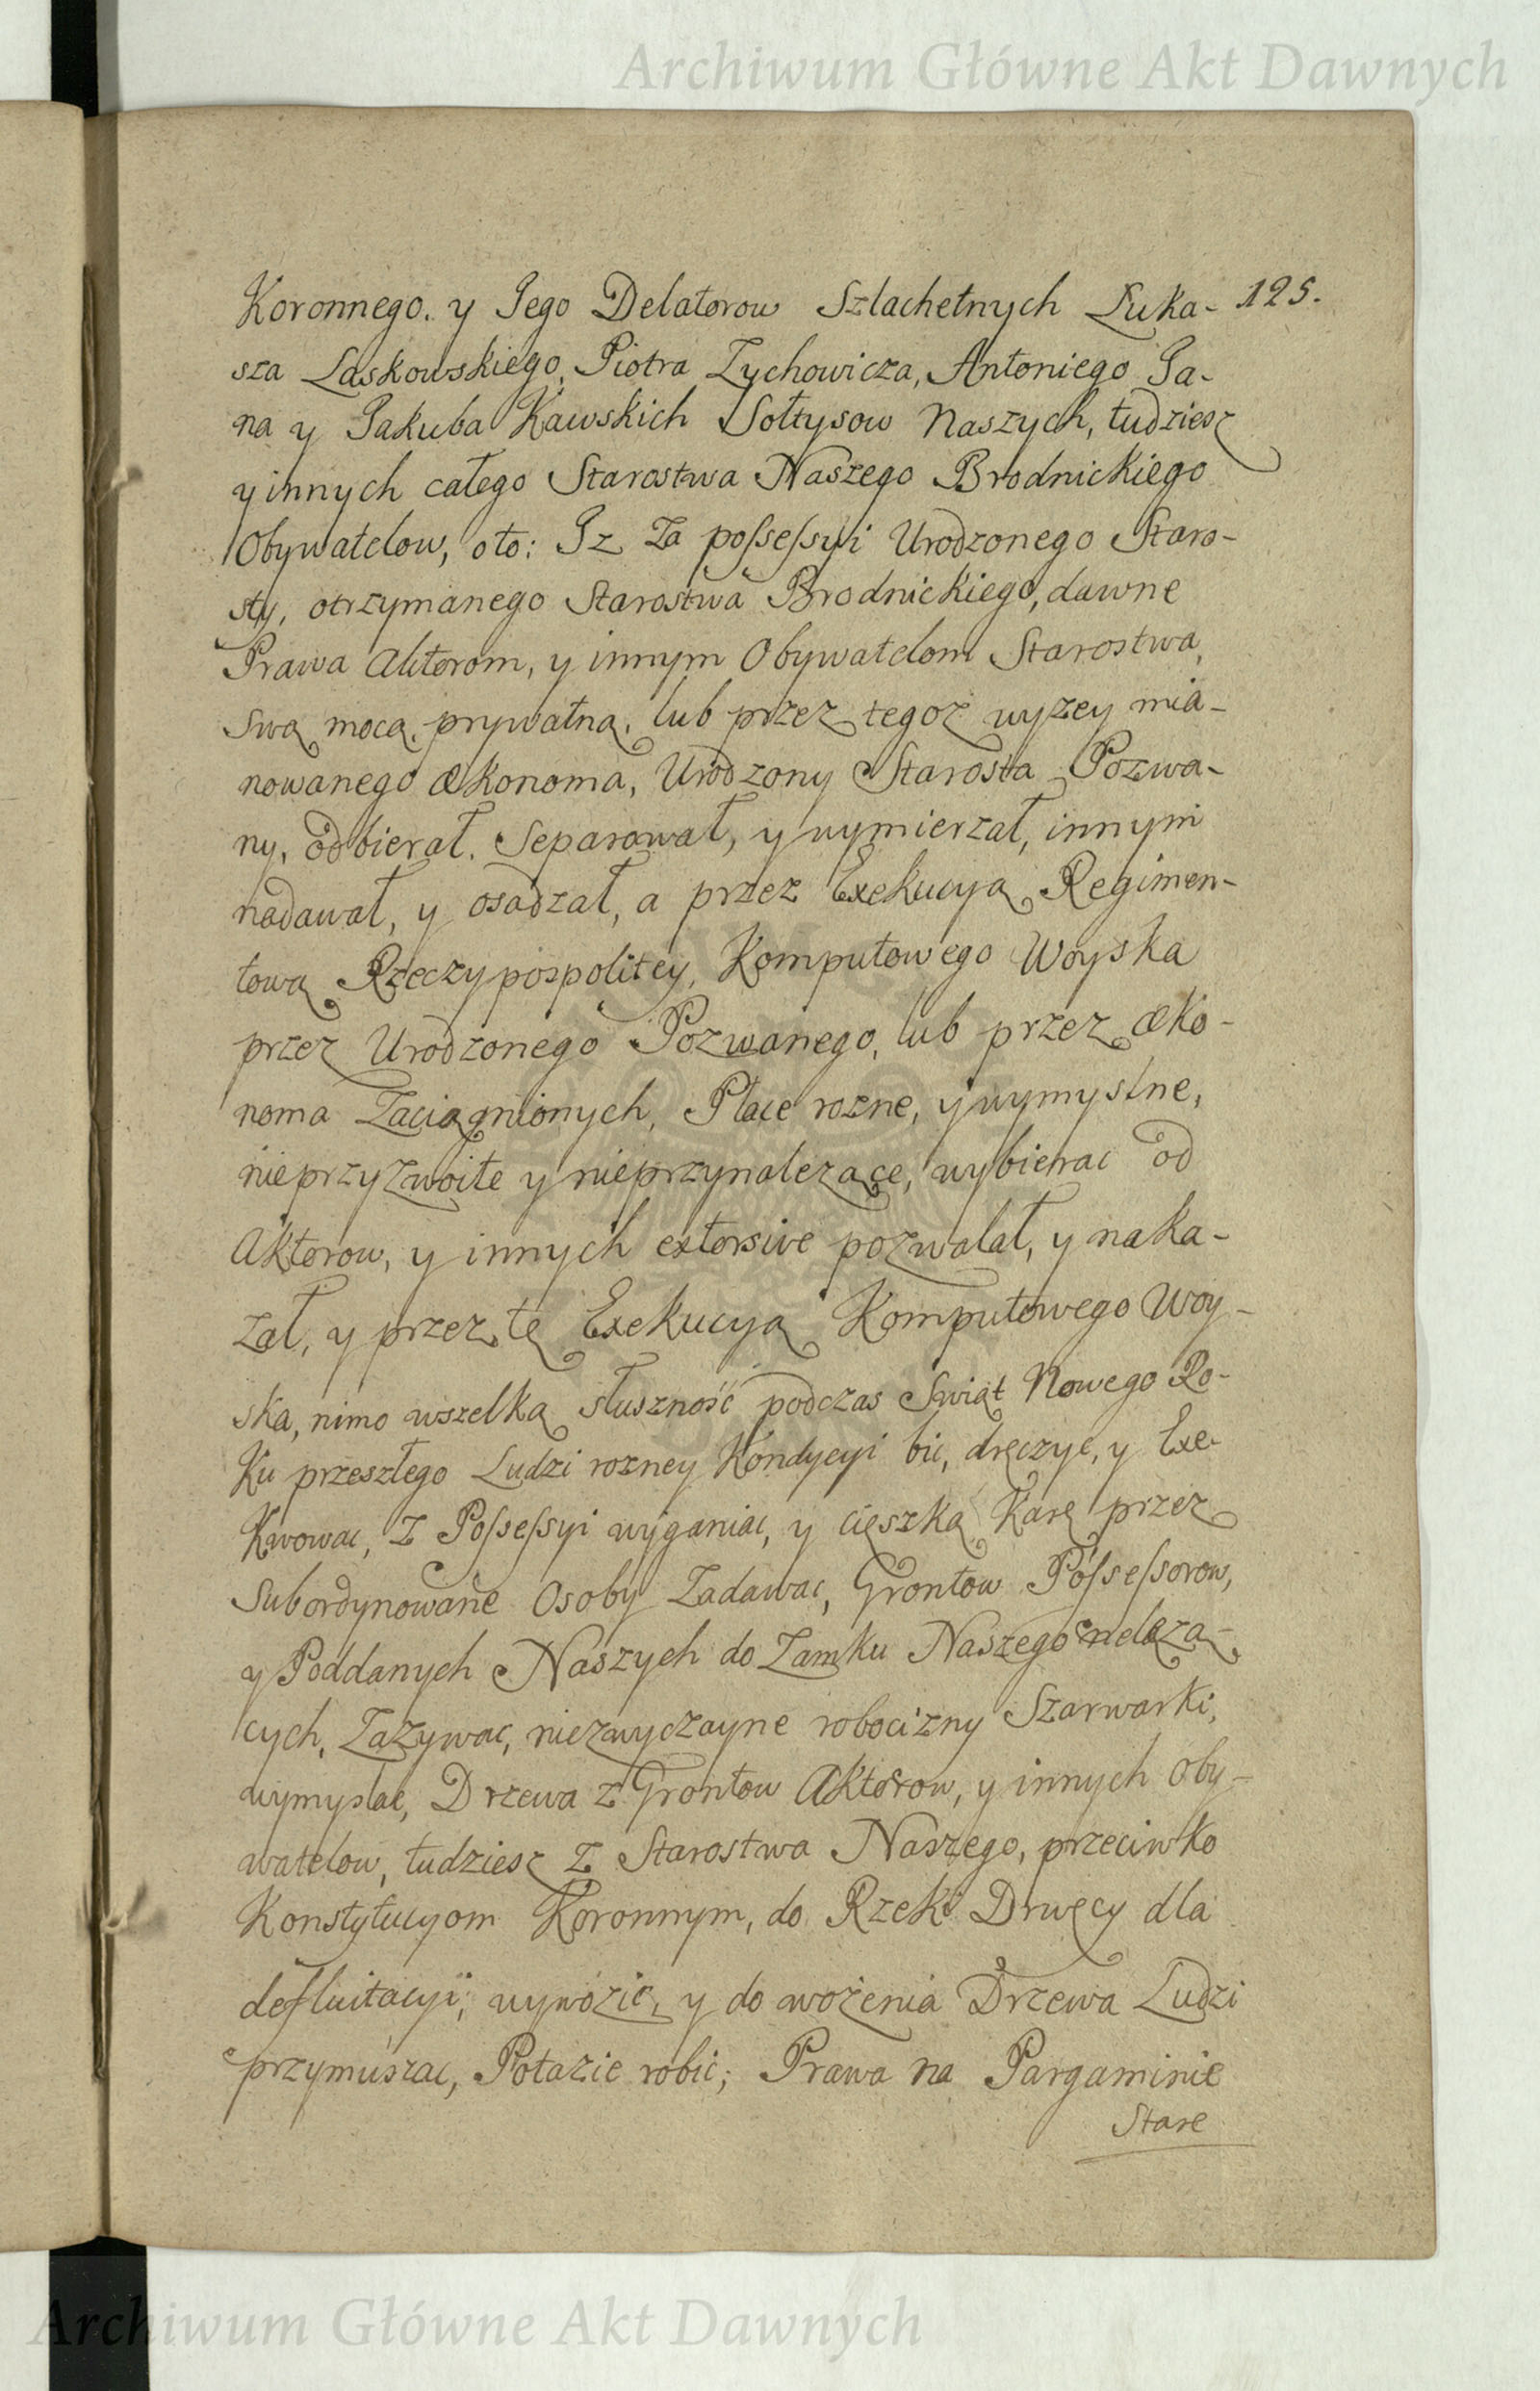 Archiwum Główne Akt Dawnych
Koronnego. y Jego Delatorow Szlachetnych Łuka- 125.
sza Laskowskiego, Piotra Zychowicza, Antoniego Ja-
na y Jakuba Kawskich Sołtysow Naszych, tudziesz
y innych całego Starostwa Naszego Brodnickiego
Obywatelow, oto: Jz za poſseſsyi Urodzonego Staro-
sty, otrzymanego Starostwa Brodnickiego, dawne
Prawa Aktorom, y innym Obywatelom Starostwa,
swą mocą prywatną, lub przez tegoz wyzey mia-
nowanego Œkonoma, Urodzony Starosta Pozwa-
ny, odbierał, Separował, y wymierzał, innym
nadawał, y osadzał, a przez Exekucyą Regimen-
tową Rzeczypospolitey, Komputowego Woyska
przez Urodzonego Pozwanego, lub przez Œko-
noma Zaciągnionych, Płace rozne, y wymyslne,
nieprzyzwoite y nieprzynalezące, wybierac od
Aktorow, y innych extorsive pozwalał, y naka-
zał, y przez tę Exekucyą Komputowego Woy-
ska, nimo wszelką słuszność podczas Swiąt Nowego Ro-
ku przeszłego Ludzi rozney Kondycyi bic, dręczyc, y Exe-
kwowac, z Poſseſsyi wyganiac, y cięszką Karę przez
Subordynowane Osoby Zadawac, Grontow Poſseſsorow,
y Poddanych Naszych do Zamku Naszego nelezą-
cych, Zazywac, niezwyczayne robocizny Szarwarki,
wymyslac, Drzewa z Grontow Aktorow, y innych Oby-
watelow, tudziesz z Starostwa Naszego, przeciwko
Konstytucyom Koronnym, do Rzeki Drwęcy dla
defluitacyi, wywozic, y do wożenia Drzewa Ludzi
przymuszac, Potazie robic; Prawa na Pargaminie
Stare
Archiwum Główne Akt Dawnych